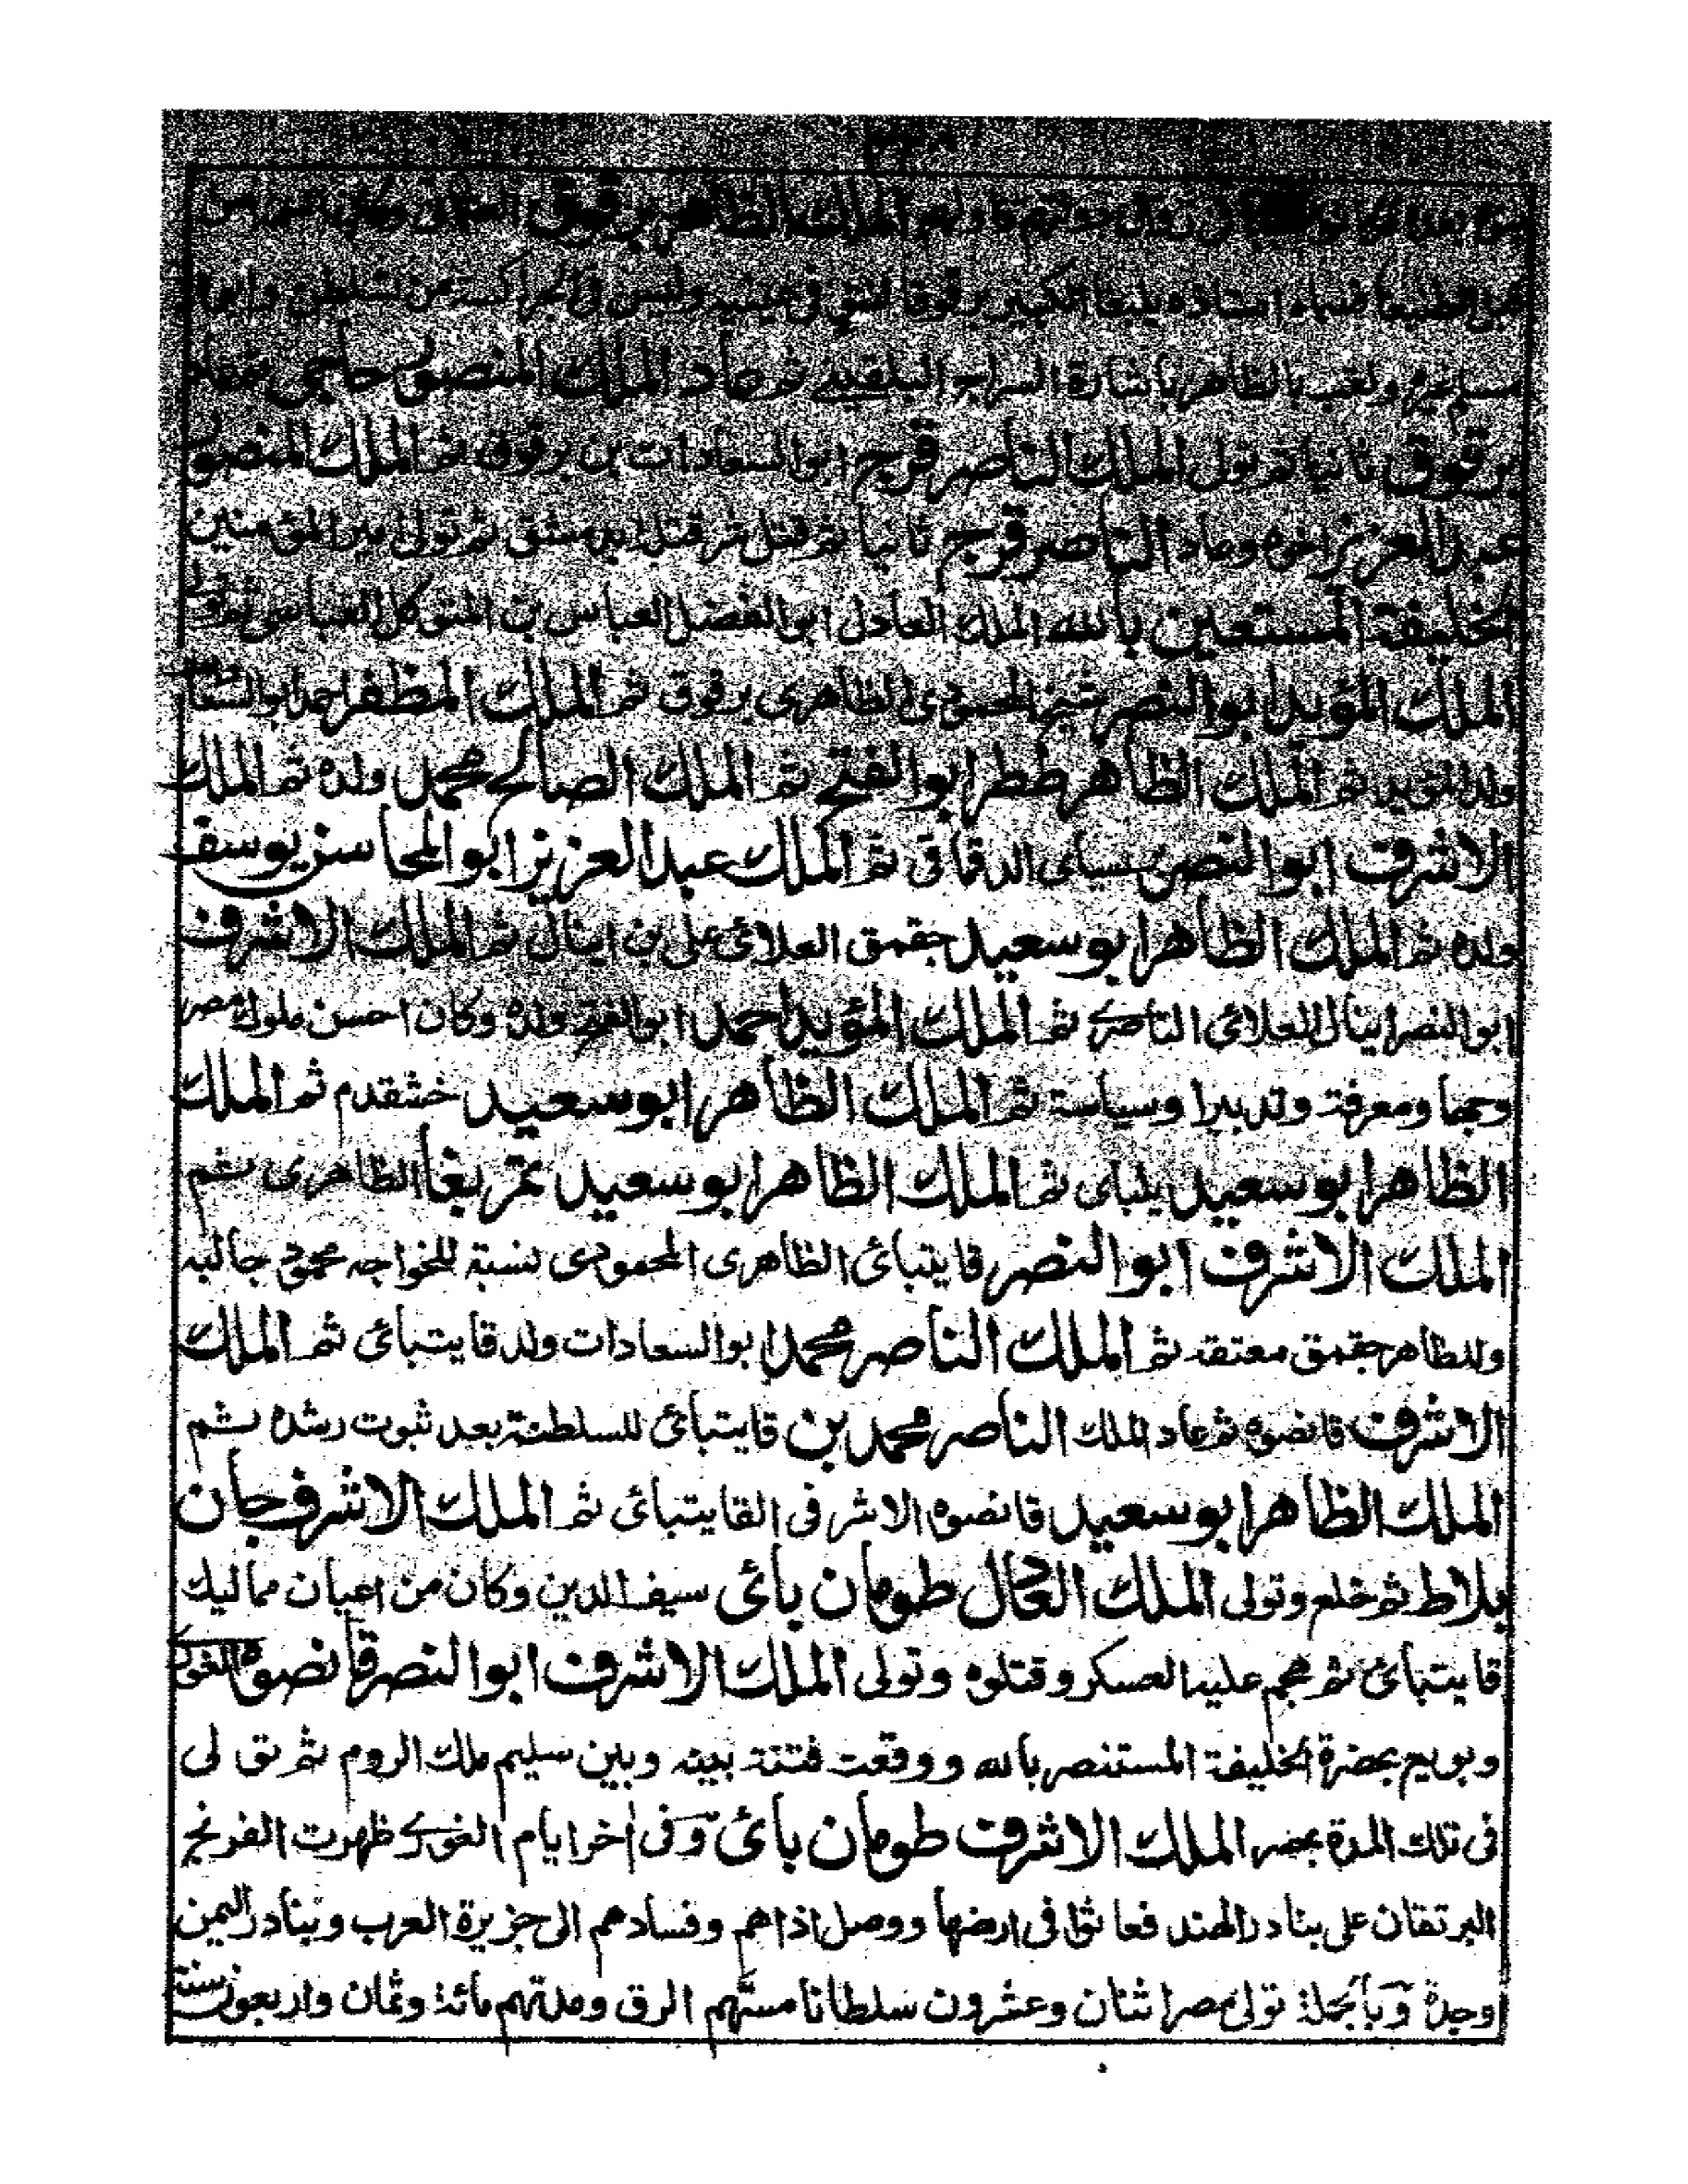 الملك الظاهر برقوق
استاذه يلبغا الكبير برقوقا وليس في الجراكسة من تسلطن وابوه
مسلم غيره ولقب بالظاهر باشارة السراج البلقيني ثم عاد الملك المنصور حاجي
برقوق ثانيا ثم تولى الملك الناصر فرج ابو السعادات بن برقوق ثم الملك المنصور
عبد العزيز اخوه وعاد الناصر فرج ثانيا ثم قتل بدمشق ثم تولى امير المؤمنين
الخليفة المستعين بالله الملك العادل ابو الفضل العباس بن المتوكل العباسي ثم تولى
الملك المؤيد ابو النصر شيخ المحمودي الظاهرى برقوق ثم الملك المظفر احمد ابو السعادات
ولد المؤيد ثم الملك الظاهر ططر ابو الفتح ثم الملك الصالح محمد ولده ثم الملك
الاشرف ابو النصر برسباى الدقماقى ثم الملك عبد العزيز ابو المحاسن يوسف
ولده ثم الملك الظاهر ابو سعيد جقمق العلائى على بن اينال ثم الملك الاشرف
ابو النصر اينال العلائى الناصرى ثم الملك المؤيد احمد ابو الفتح ولده وكان احسن ملوك مصر
وجها ومعرفة وتدبيرا وسياسة ثم الملك الظاهر ابو سعيد خشقدم ثم الملك
الظاهر ابو سعيد يلباى ثم الملك الظاهر ابو سعيد تمربغا الظاهرى ثم
الملك الاشرف ابو النصر قايتبائ الظاهرى المحمودى نسبة للخواجه محمود جالبه
وللظاهر جقمق معتقه ثم الملك الناصر محمد ابو السعادات ولد قايتبائ ثم الملك
الاشرف قانصوه ثم عاد الملك الناصر محمد بن قايتبائ للسلطنة بعد ثبوت رشده ثم
الملك الظاهر ابو سعيد قانصوه الاشرفى القايتبائى ثم الملك الاشرف جان
بلاط ثم خلع وتولى الملك العادل طومان بائ سيف الدين وكان من اعيان مماليك
قايتبائ ثم هجم عليه العسكر وقتلوه وتولى الملك الاشرف ابو النصر قانصوه الغورى
وبويع بحضرة الخليفة المستنصر بالله ووقعت فتنة بينه وبين سليم ملك الروم ثم تولى
فى تلك المدة بمصر الملك الاشرف طومان بائ وفى اخر ايام الغورى ظهرت الفرنج
البرتقان على بنادر الهند فعاثوا فى ارضها ووصل اذاهم وفسادهم الى جزيرة العرب وبنادر اليمن
وجدة وبالجملة تولى مصر اثنان وعشرون سلطانا مستهم الرق ومدتهم مائة وثمان واربعون سنة